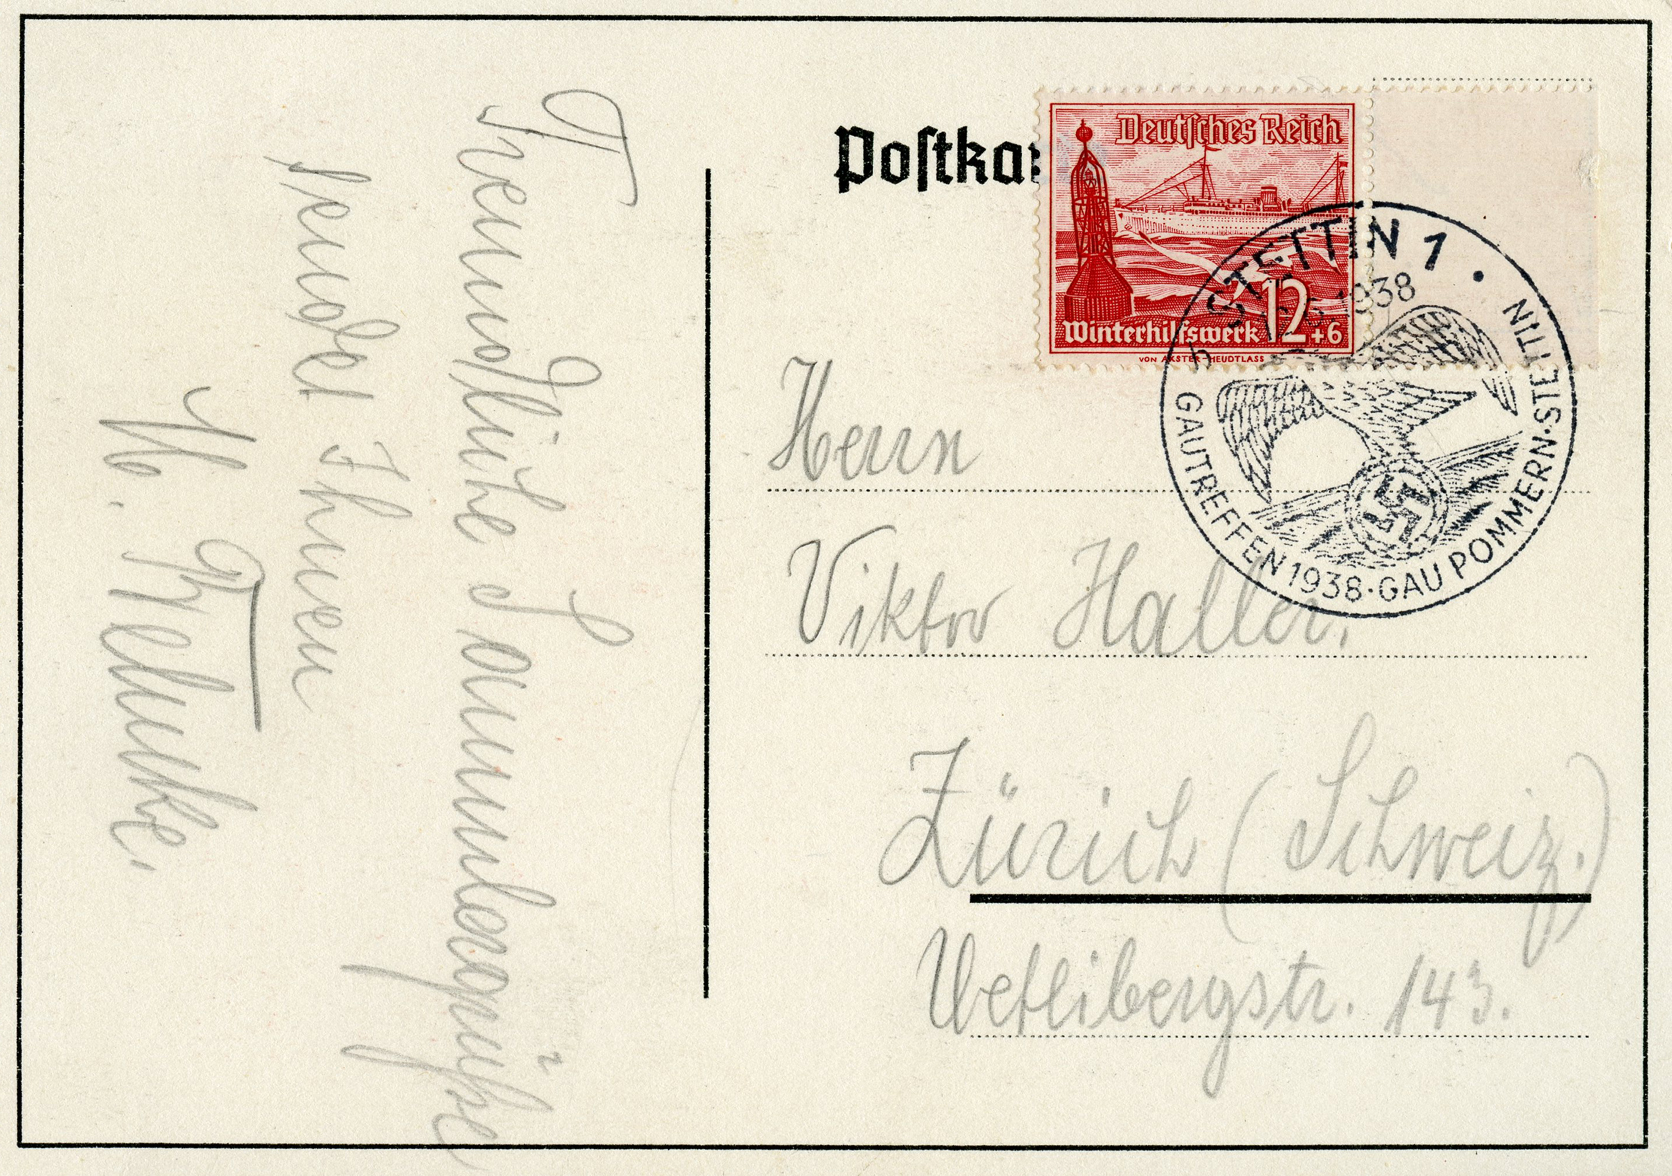 Freundliche Sammlergrüße
sendet Ihnen
Postkar
Deutsches Reich
Winterhilfswerk 12+6
VON AXSTER-HEUDTLASS
STETTIN 1
1938
GAUTREFFEN 1938·GAU POMMERN·STETTIN
Herrn
Viktor Haller.
Zürich (Schweiz.)
Uetlibergstr. 143.